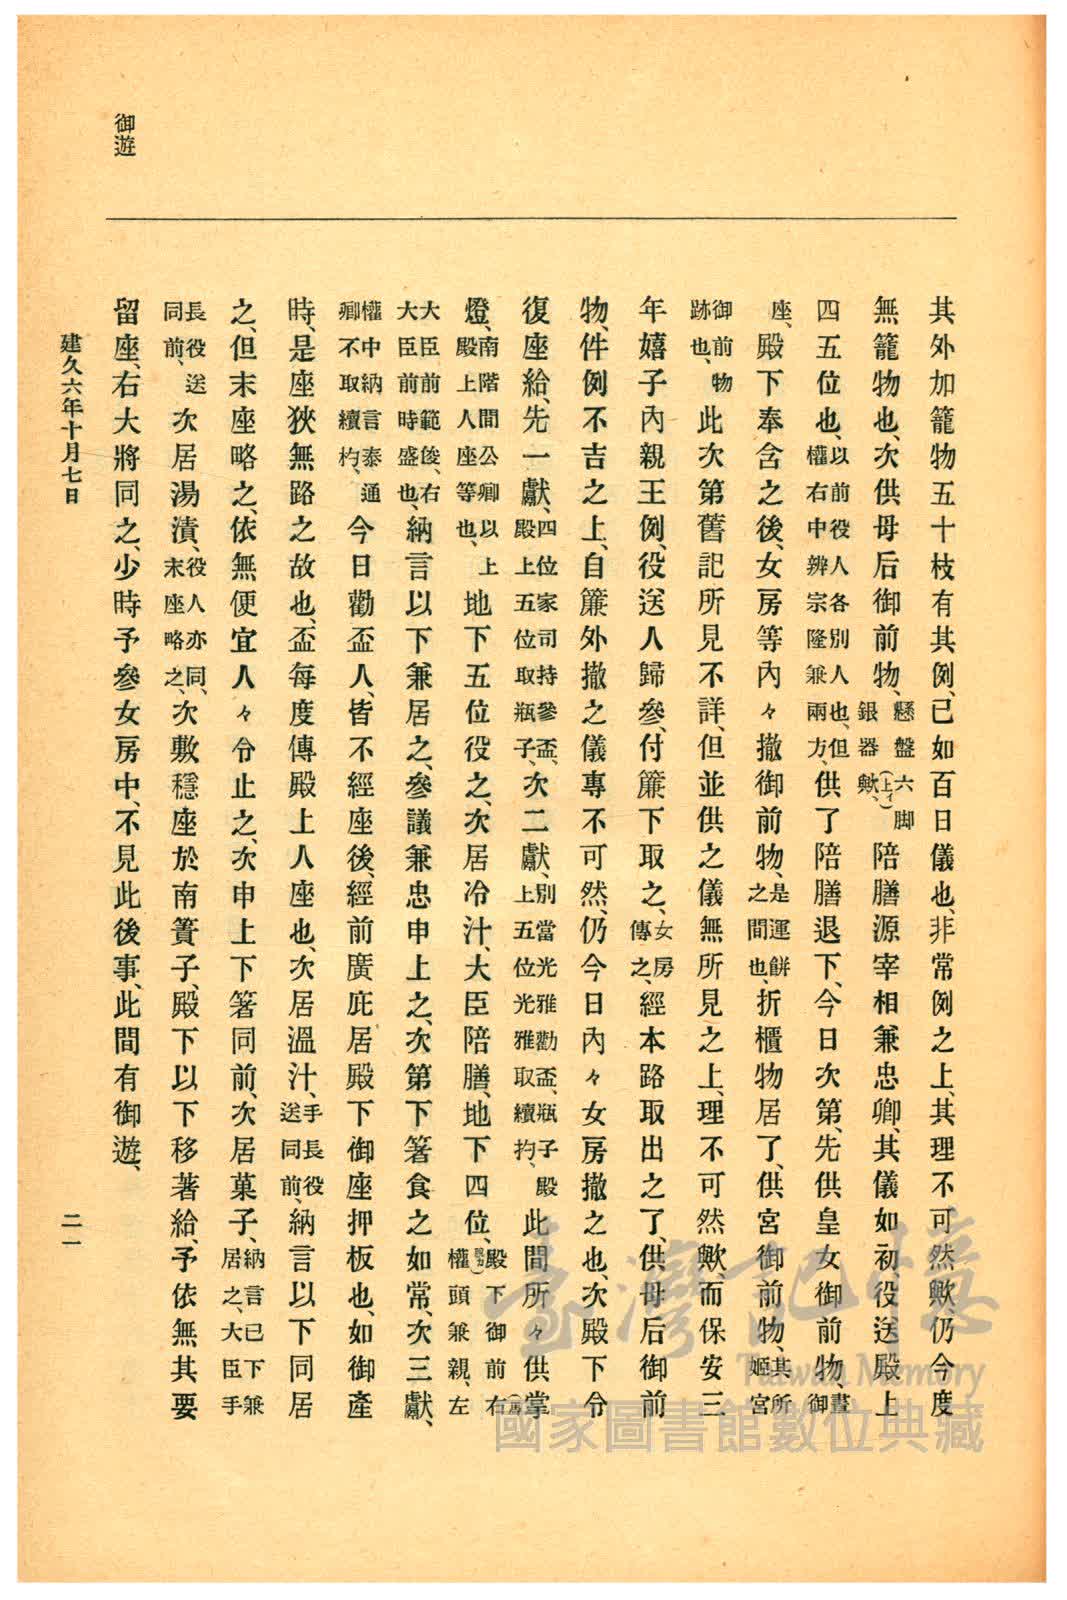 御遊
其外加籠物五十枝有其例、已如百日儀也、非常例之上、其理不可然歟、仍今度
無籠物也、次供母后御前物、懸盤六脚(上イ)銀器歟、陪膳源宰相兼忠卿、其儀如初、役送殿上
四五位也、以前役人各別人也、但權右中辨宗隆兼兩方、供了陪膳退下、今日次第、先供皇女御前物、晝御
座、殿下奉含之後、女房等內々撤御前物、是運餅之間也、折櫃物居了、供宮御前物、其所姬宮
御前物跡也、此次第舊記所見不詳、但並供之儀無所見之上、理不可然歟、而保安三
年嬉子內親王例、役送人歸參、付簾下取之、女房傳之、經本路取出之了、供母后御前
物、件例不吉之上、自簾外撤之儀專不可然、仍今日內々女房撤之也、次殿下令
復座給、先一獻、四位家司持參盃、殿上五位取瓶子、次二獻、別當光雅勸盃、瓶子殿上五位光雅取續杓、此間所々供掌(イ無)
燈、南階間公卿以上殿上人座等也、地下五位役之、次居冷汁、大臣陪膳、地下四位、殿下御前右權頭兼親、左
大臣前範俊、右大臣前時盛也、納言以下兼居之、參議兼忠申上之、次第下箸食之如常、次三獻、
權中納言泰通卿不取續杓、今日勸盃人、皆不經座後、經前廣庇居殿下御座押板也、如御產
時、是座狹無路之故也、盃每度傳殿上人座也、次居溫汁、手長役送同前、納言以下同居
之、但末座略之、依無便宜人々令止之、次申上下箸同前、次居菓子、納言已下兼居之、大臣手
長役送同前、次居湯漬、役人亦同、末座略之、次敷穩座於南簀子、殿下以下移著給、予依無其要
留座、右大將同之、少時予參女房中、不見此後事、此間有御遊、
建久六年十月七日
二一
臺灣記憶
Taiwan Memory
國家圖書館數位典藏